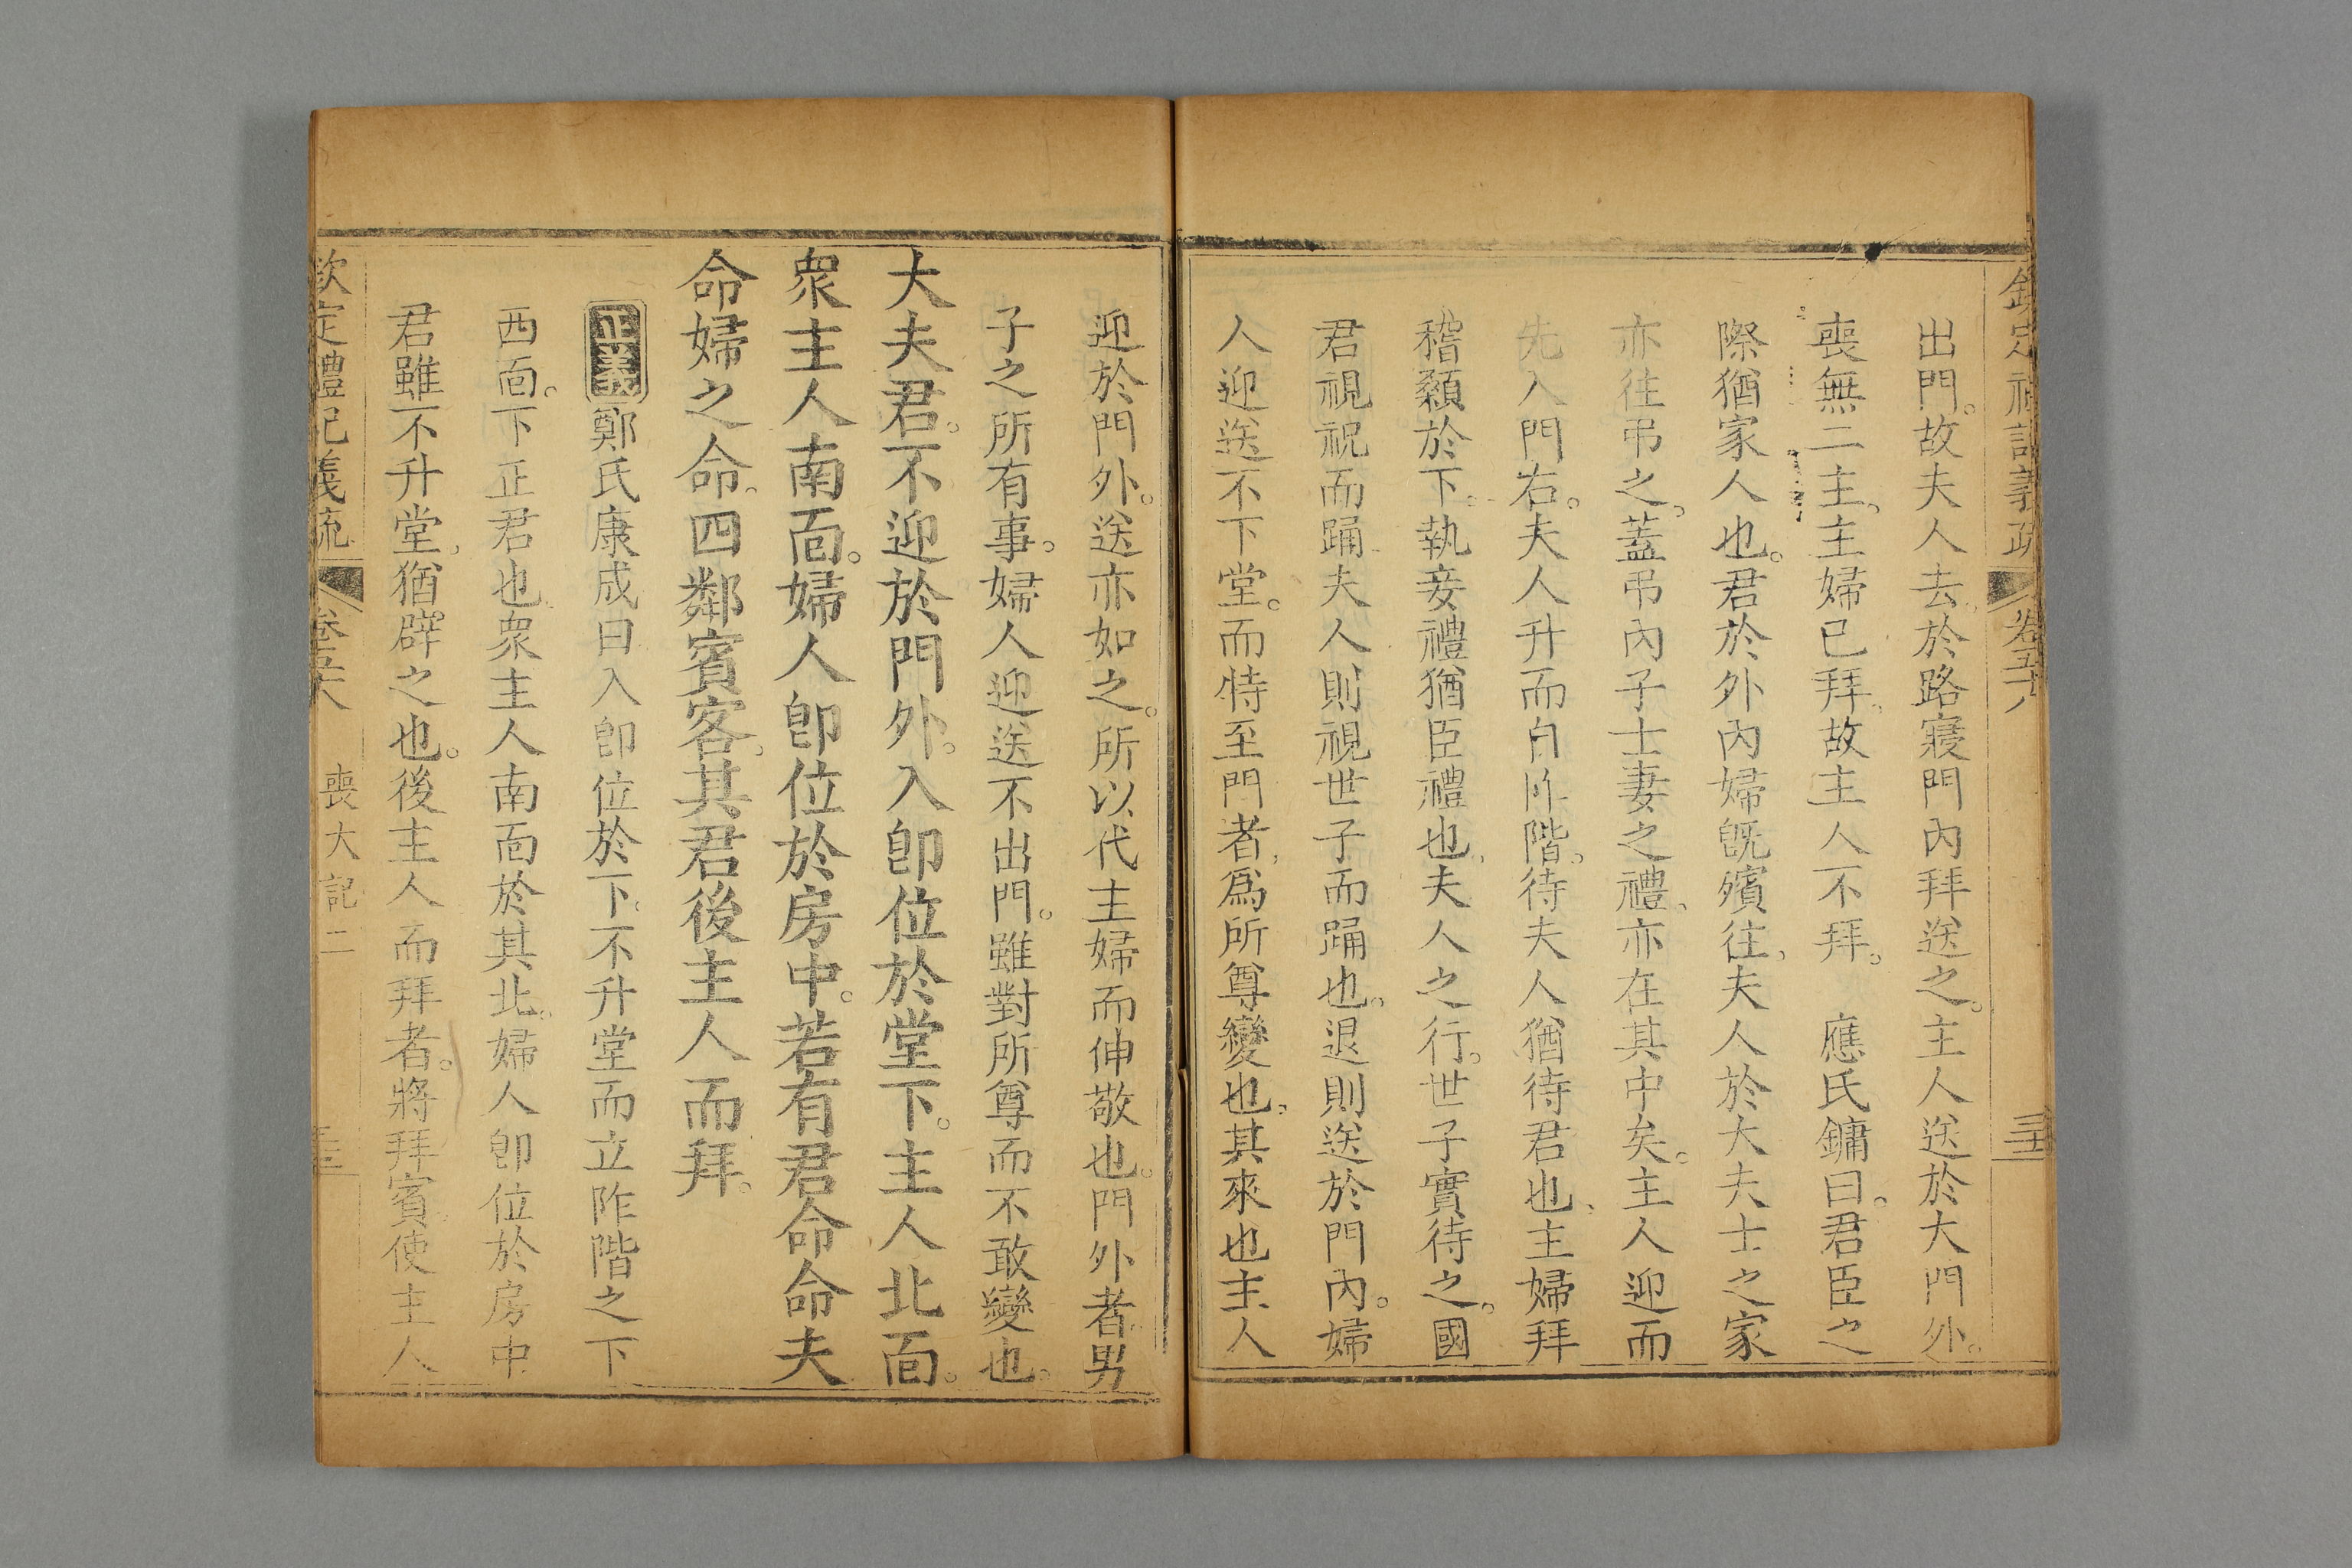 欽定禮記義疏 卷五十八
出門。故夫人去。於路寢門內拜送之。主人送於大門外。
喪無二主。主婦已拜。故主人不拜。 應氏鏞曰。君臣之
際猶家人也。君於外內婦旣殯往。夫人於大夫士之家
亦往弔之。蓋弔內子士妻之禮。亦在其中矣。主人迎而
先入門右。夫人升而自阼階。待夫人猶待君也。主婦拜
稽顙於下。執妾禮猶臣禮也。夫人之行。世子實待之。國
君視祝而踊。夫人則視世子而踊也。退則送於門內。婦
人迎送不下堂。而特至門者。爲所尊變也。其來也主人
迎於門外。送亦如之。所以代主婦而伸敬也。門外者男
子之所有事。婦人迎送不出門。雖對所尊而不敢變也。
大夫君。不迎於門外。入卽位於堂下。主人北面。
衆主人南面。婦人卽位於房中。若有君命命夫
命婦之命。四鄰賓客。其君後主人而拜。
正義 鄭氏康成曰入卽位於下。不升堂而立阼階之下
西面。下正君也。衆主人南面於其北。婦人卽位於房中
君雖不升堂。猶辟之也。後主人而拜者。將拜賓。使主人
欽定禮記義疏 卷五十八 喪大記二